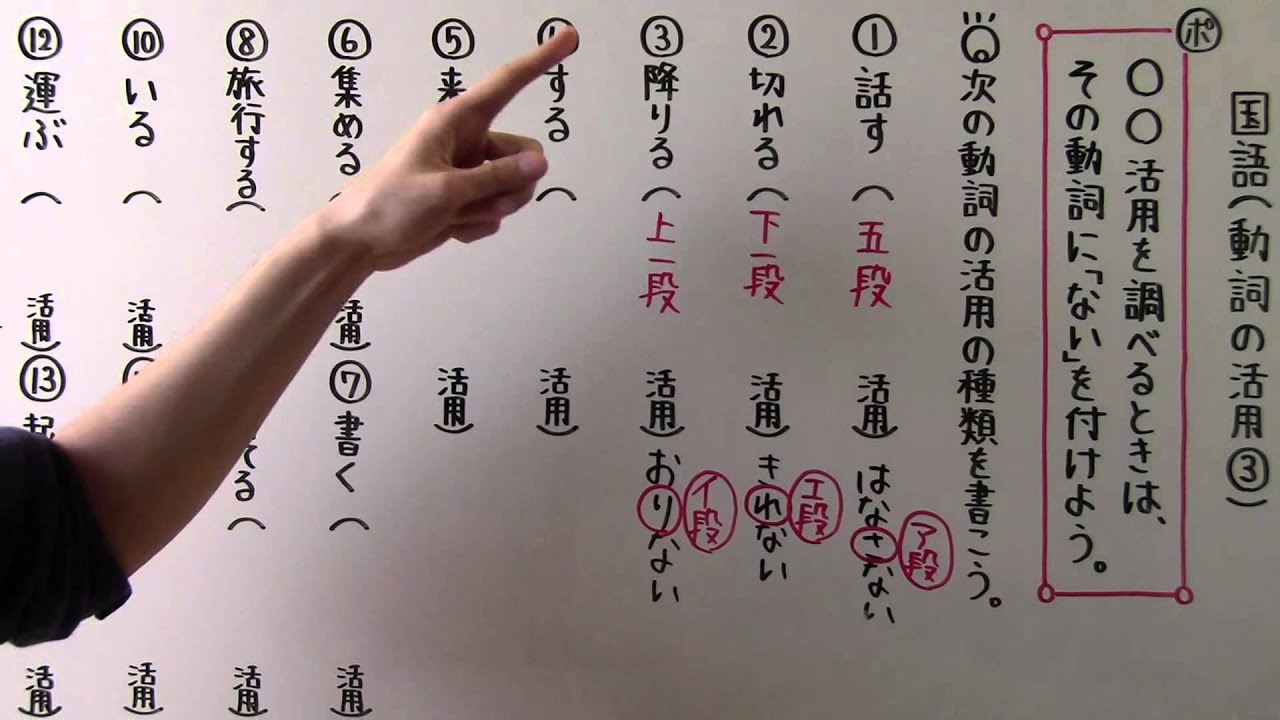 国語(動詞の活用③)
ポ
〇〇活用を調べるときは、
その動詞に「ない」を付けよう。
次の動詞の活用の種類を書こう。
①話す(五段 活用) はなさない
ア段
②切れる(下一段 活用) きれない
エ段
③降りる(上一段 活用) おりない
イ段
する( 活用)
⑤来 活用)
⑥集める( 活用)
⑦書く( 活用)
⑧旅行する(
てる( 活用)
⑩いる( 活用)
活用)
⑫運ぶ( 活用)
⑬起
活用)